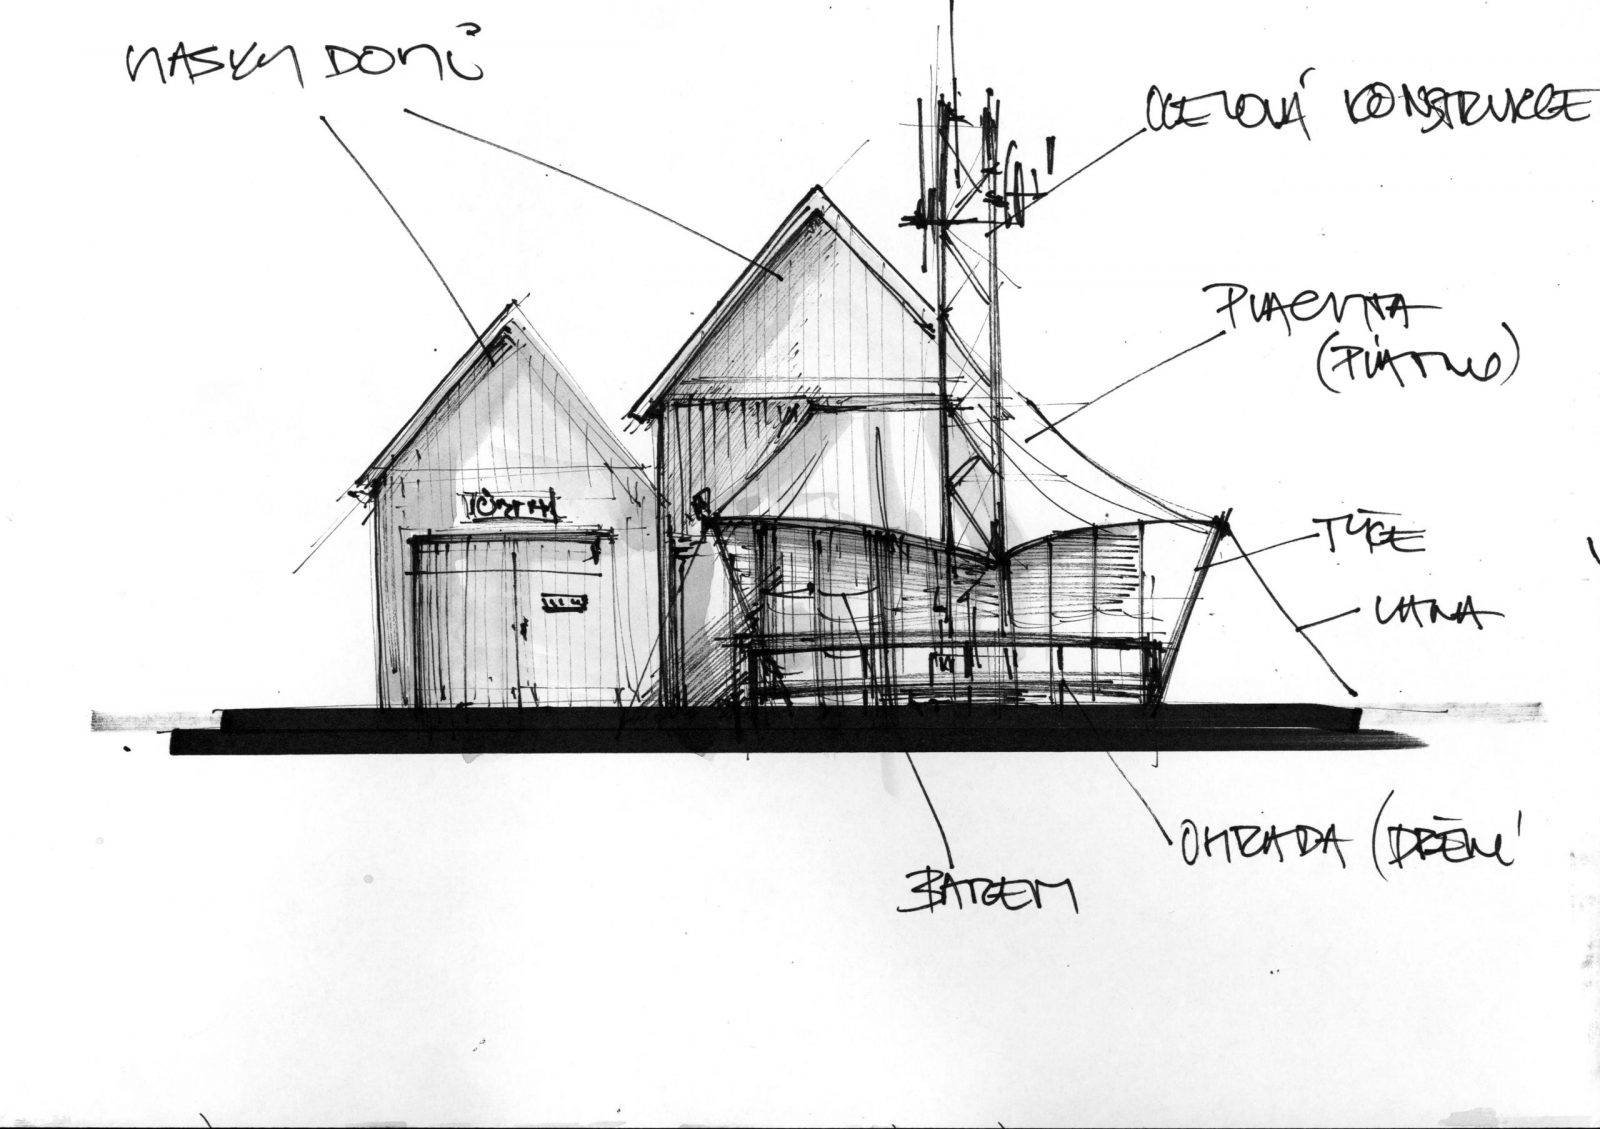 MASKY DOMŮ
OCELOVÁ KONSTRUKCE
PLACHTA
(PLÁTNO)
TYČE
LANA
OHRADA